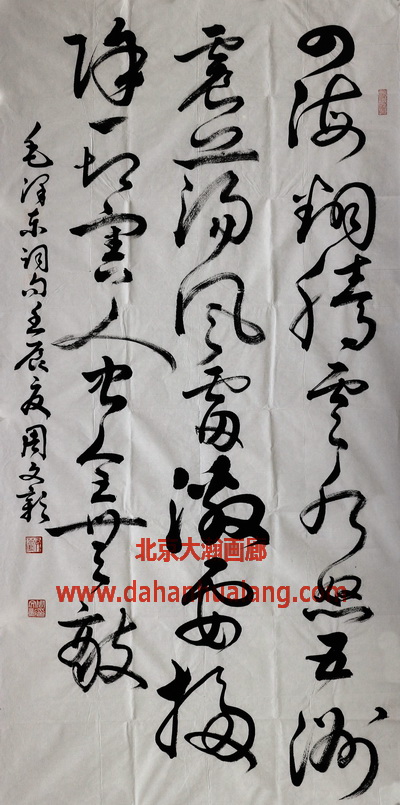 四海翻腾云水怒五洲
震荡风雷激要扫
除一切害人虫全無敌
毛泽东词句壬辰夏周文彰
北京大瀚画廊
www.dahanhualang.com